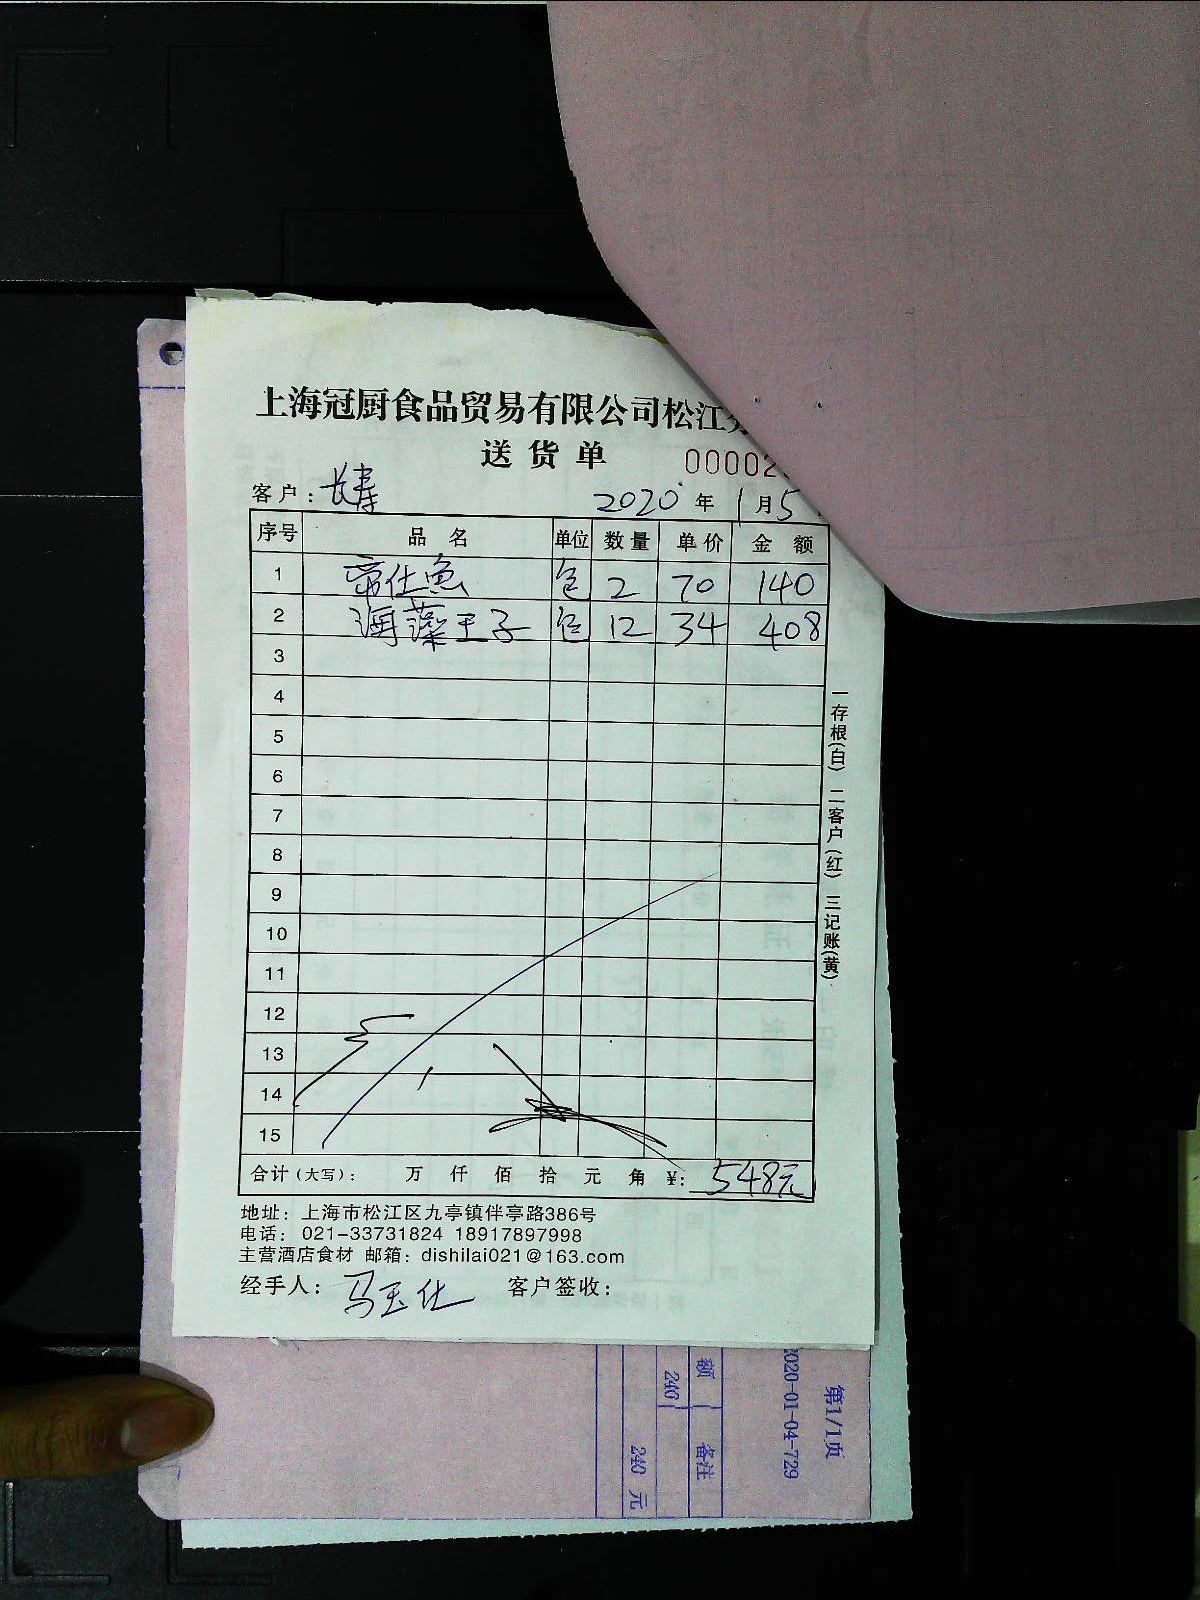 上海冠厨食品贸易有限公司松江
送货单
00002
客户: 长寿 2020年1月5
序号 品名 单位 数量 单价 金额
1 帝仕鱼 包 2 70 140
2 海藻王子 包 12 34 408
3
4
5
6
7
8
9
10
11
12
13
14
15
合计(大写): 万 仟 佰 拾 元 角 ¥: 548元
一存根(白) 二客户(红) 三记账(黄)
地址: 上海市松江区九亭镇伴亭路386号
电话: 021-33731824 18917897998
主营酒店食材 邮箱: dishilai021@163.com
经手人: 马玉仕 客户签收:
第1/1页
2020-01-04-729
额 备注
240
240 元